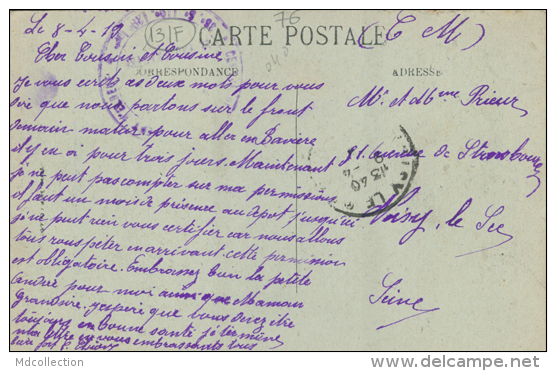 Le 8-4-19
(131F)
76
(C M)
CARTE POSTALE
Cher Cousin et Cousine
CORRESPONDANCE
ADRESSE
Je vous ecrit as deux mots pour vous
dire que nous partons sur le front
demain matin pour aller en Baviere
il y en a pour trois jours. Maintenant
je ne puis pas compter sur ma permission
il faut un mois de présence au depot
je ne puit rien vous certifier car nous allons
tous rouspeter en arrivant cette permission
est obligatoire. Embrassez bien la petite
Andrée pour moi ainsi que Maman
Grandsire, j'espere que vous serez être
toujours en bonne santé je termine
ma lettre en vous embrassants tous
bien fort
Mr. et Mme Prieur
81 avenue de Strasbourg
Noisy le Sec
Seine
13 40
Mdcollection
www.delcampe.net